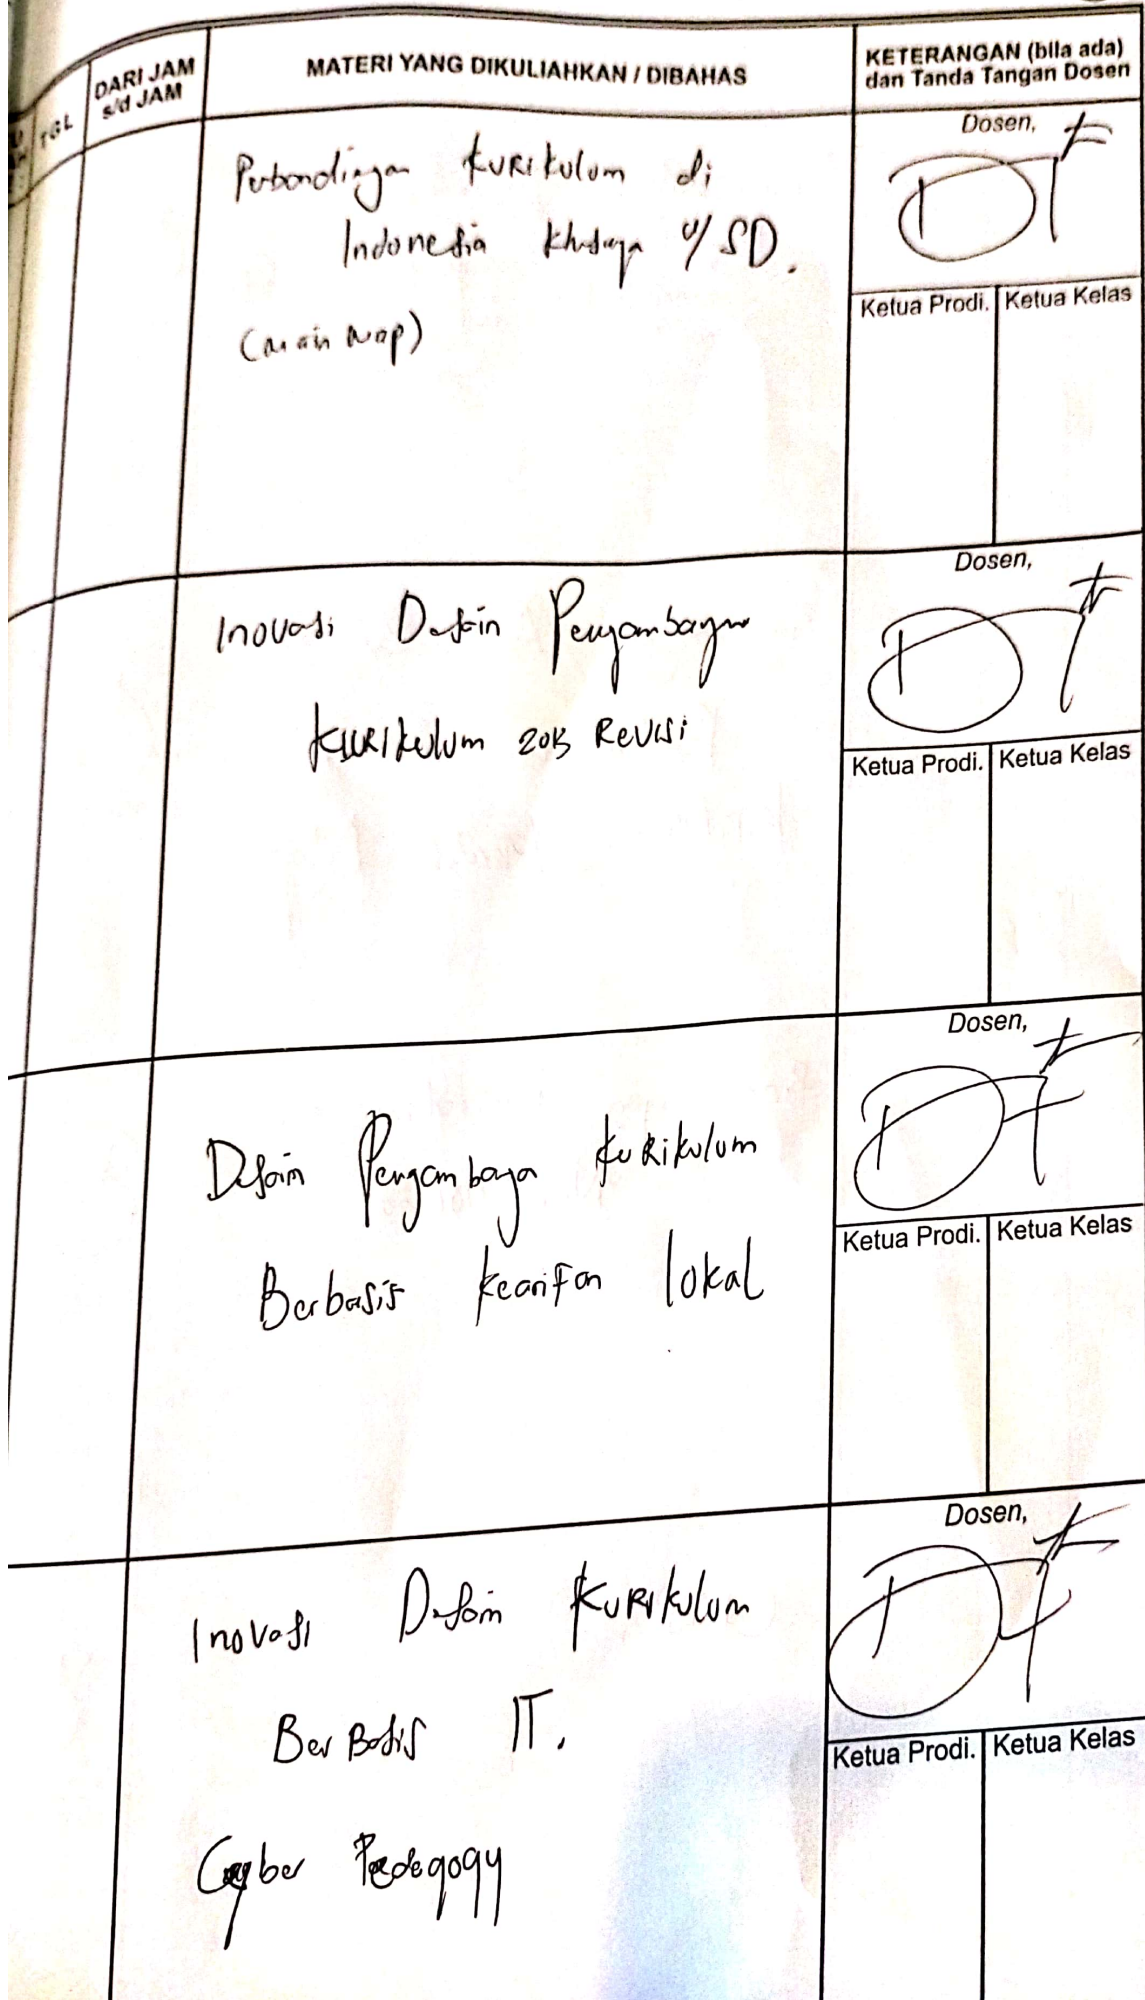 TGL
DARI JAM
s/d JAM
MATERI YANG DIKULIAHKAN / DIBAHAS
KETERANGAN (bila ada)
dan Tanda Tangan Dosen
Dosen,
Perbandingan Kurikulum di
Indonesia khusunya u/ SD.
(main map)
Ketua Prodi. Ketua Kelas
Dosen,
Inovasi Desain Pengambangan
Kurikulum 2013 Revisi
Ketua Prodi. Ketua Kelas
Dosen,
Desain Pengambanga Kurikulum
Berbasis kearifan lokal
Ketua Prodi. Ketua Kelas
Dosen,
Inovasi Desain Kurikulum
Ber Basis IT.
Cyber Pedegogy
Ketua Prodi. Ketua Kelas